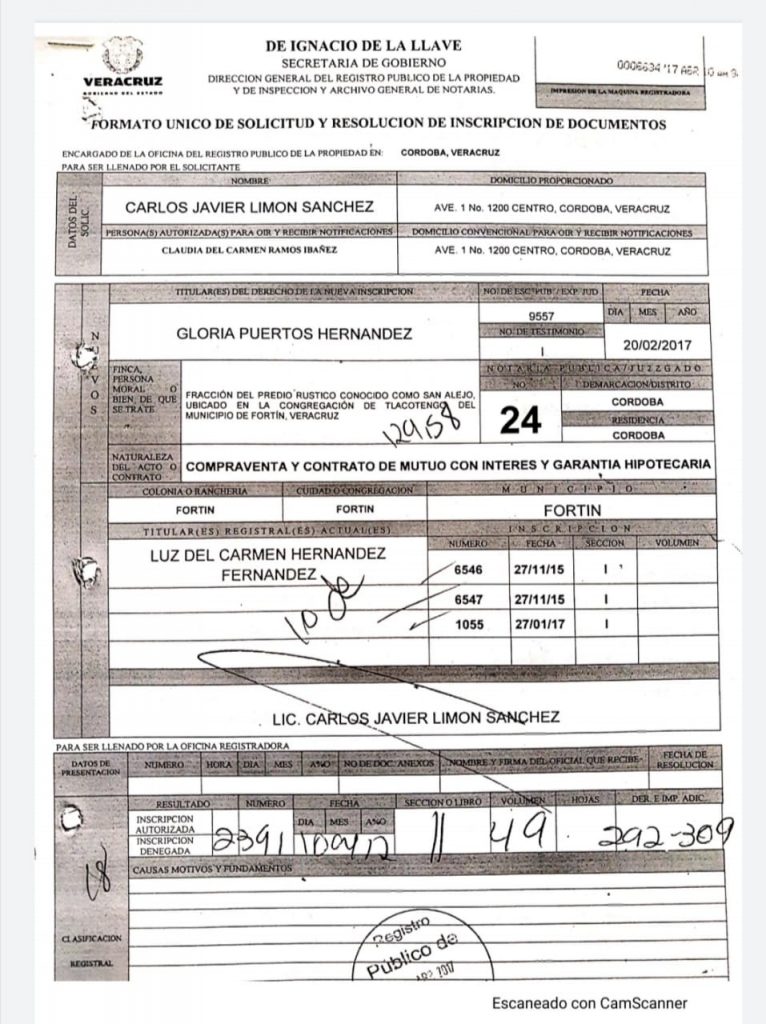 DE IGNACIO DE LA LLAVE
SECRETARIA DE GOBIERNO
DIRECCION GENERAL DEL REGISTRO PUBLICO DE LA PROPIEDAD
Y DE INSPECCION Y ARCHIVO GENERAL DE NOTARIAS.
VERACRUZ
GOBIERNO DEL ESTADO
0006634 '17 ABR 10
IMPRESION DE LA MAQUINA REGISTRADORA
FORMATO UNICO DE SOLICITUD Y RESOLUCION DE INSCRIPCION DE DOCUMENTOS
ENCARGADO DE LA OFICINA DEL REGISTRO PUBLICO DE LA PROPIEDAD EN: CORDOBA, VERACRUZ
PARA SER LLENADO POR EL SOLICITANTE
DATOS DEL SOLIC.
NOMBRE DOMICILIO PROPORCIONADO
CARLOS JAVIER LIMON SANCHEZ AVE. 1 No. 1200 CENTRO, CORDOBA, VERACRUZ
PERSONA(S) AUTORIZADA(S) PARA OIR Y RECIBIR NOTIFICACIONES DOMICILIO CONVENCIONAL PARA OIR Y RECIBIR NOTIFICACIONES
CLAUDIA DEL CARMEN RAMOS IBAÑEZ AVE. 1 No. 1200 CENTRO, CORDOBA, VERACRUZ
TITULAR(ES) DEL DERECHO DE LA NUEVA INSCRIPCION NO. DE ESC PUB / EXP JUD FECHA
9557 DIA MES AÑO
GLORIA PUERTOS HERNANDEZ NO. DE TESTIMONIO
I 20/02/2017
FINCA, PERSONA MORAL O BIEN, DE QUE SE TRATE
FRACCIÓN DEL PREDIO RUSTICO CONOCIDO COMO SAN ALEJO,
UBICADO EN LA CONGREGACIÓN DE TLACOTENGO DEL
MUNICIPIO DE FORTÍN, VERACRUZ
12958
NOTARIA PUBLICA/JUZGADO
NO. DEMARCACION/DISTRITO
24 CORDOBA
RESIDENCIA
CORDOBA
NATURALEZA DEL ACTO O CONTRATO
COMPRAVENTA Y CONTRATO DE MUTUO CON INTERES Y GARANTIA HIPOTECARIA
COLONIA O RANCHERIA CUIDAD O CONGREGACION MUNICIPIO
FORTIN FORTIN FORTIN
TITULAR(ES) REGISTRAL(ES) ACTUAL(ES) INSCRIPCION
NUMERO FECHA SECCION VOLUMEN
LUZ DEL CARMEN HERNANDEZ
FERNANDEZ
6546 27/11/15 I
6547 27/11/15 I
1055 27/01/17 I
LIC. CARLOS JAVIER LIMON SANCHEZ
PARA SER LLENADO POR LA OFICINA REGISTRADORA
DATOS DE PRESENTACION NUMERO HORA DIA MES AÑO NO DE DOC. ANEXOS NOMBRE Y FIRMA DEL OFICIAL QUE RECIBE FECHA DE RESOLUCION
RESULTADO NUMERO FECHA SECCION O LIBRO VOLUMEN HOJAS DER. E IMP. ADIC.
DIA MES AÑO
INSCRIPCION AUTORIZADA
INSCRIPCION DENEGADA
2391 49 292-309
CAUSAS MOTIVOS Y FUNDAMENTOS
18
CLASIFICACION
REGISTRAL
Registro
Público de
ABR 2017
Escaneado con CamScanner